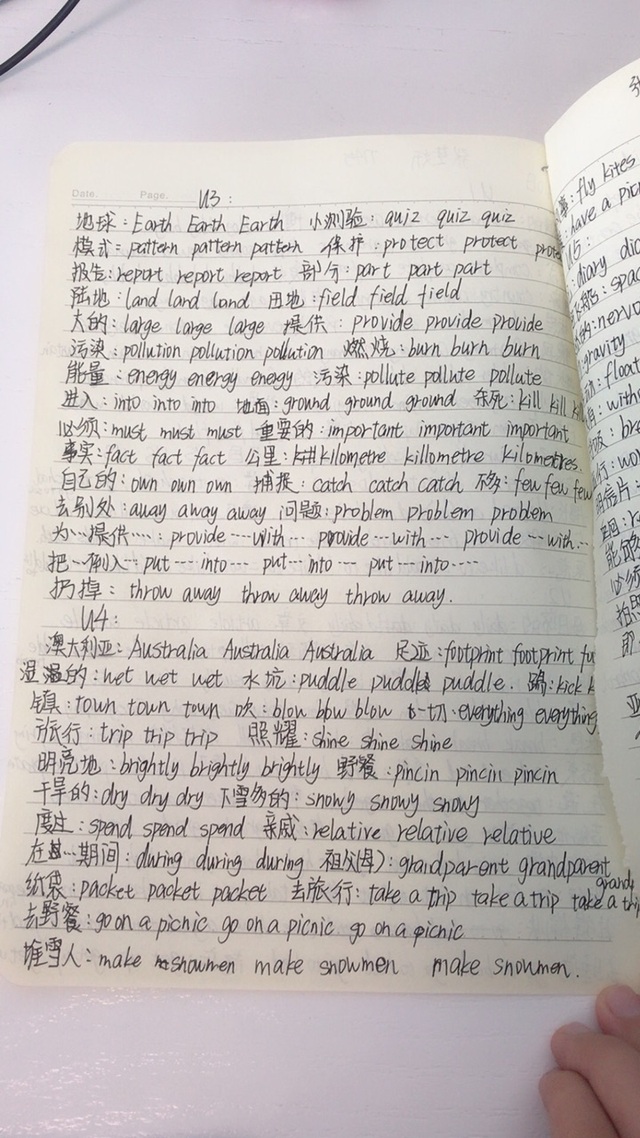 Date. Page.
U3:
地球: Earth Earth Earth 小测验: quiz quiz quiz
模式: pattern pattern pattern 保护: protect protect prote
报告: report report report 部分: part part part
陆地: land land land 田地: field field field
大的: large large large 提供: provide provide provide
污染: pollution pollution pollution 燃烧: burn burn burn
能量: energy energy enegy 污染: pollute pollute pollute
进入: into into into 地面: ground ground ground 杀死: kill kill kill
必须: must must must 重要的: important important important
事实: fact fact fact 公里: killometre killometre kilometres.
自己的: own own own 捕捉: catch catch catch 不多: few few few
去别处: away away away 问题: problem problem problem
为…提供…: provide…with… provide…with… provide…with…
把…倒入…: put…into… put…into… put…into…
扔掉: throw away throw away throw away.
U4:
澳大利亚: Australia Australia Australia 足迹: footprint footprint
湿的: wet wet wet 水坑: puddle puddle puddle. 踢: kick k
镇: town town town 吹: blow blow blow 一切: everything everything
旅行: trip trip trip 照耀: shine shine shine
明亮地: brightly brightly brightly 野餐: pincin pincin pincin
干旱的: dry dry dry 下雪多的: snowy snowy snowy
度过: spend spend spend 亲戚: relative relative relative
在…期间: during during during 祖父(母): grandparent grandparent grandp
纸袋: packet packet packet 去旅行: take a trip take a trip take a trip
去野餐: go on a picnic go on a picnic go on a picnic
堆雪人: make snowmen make snowmen make snowmen.
fly kites
have a pic
U5:
diary dia
spac
nervo
gravity
float
witho